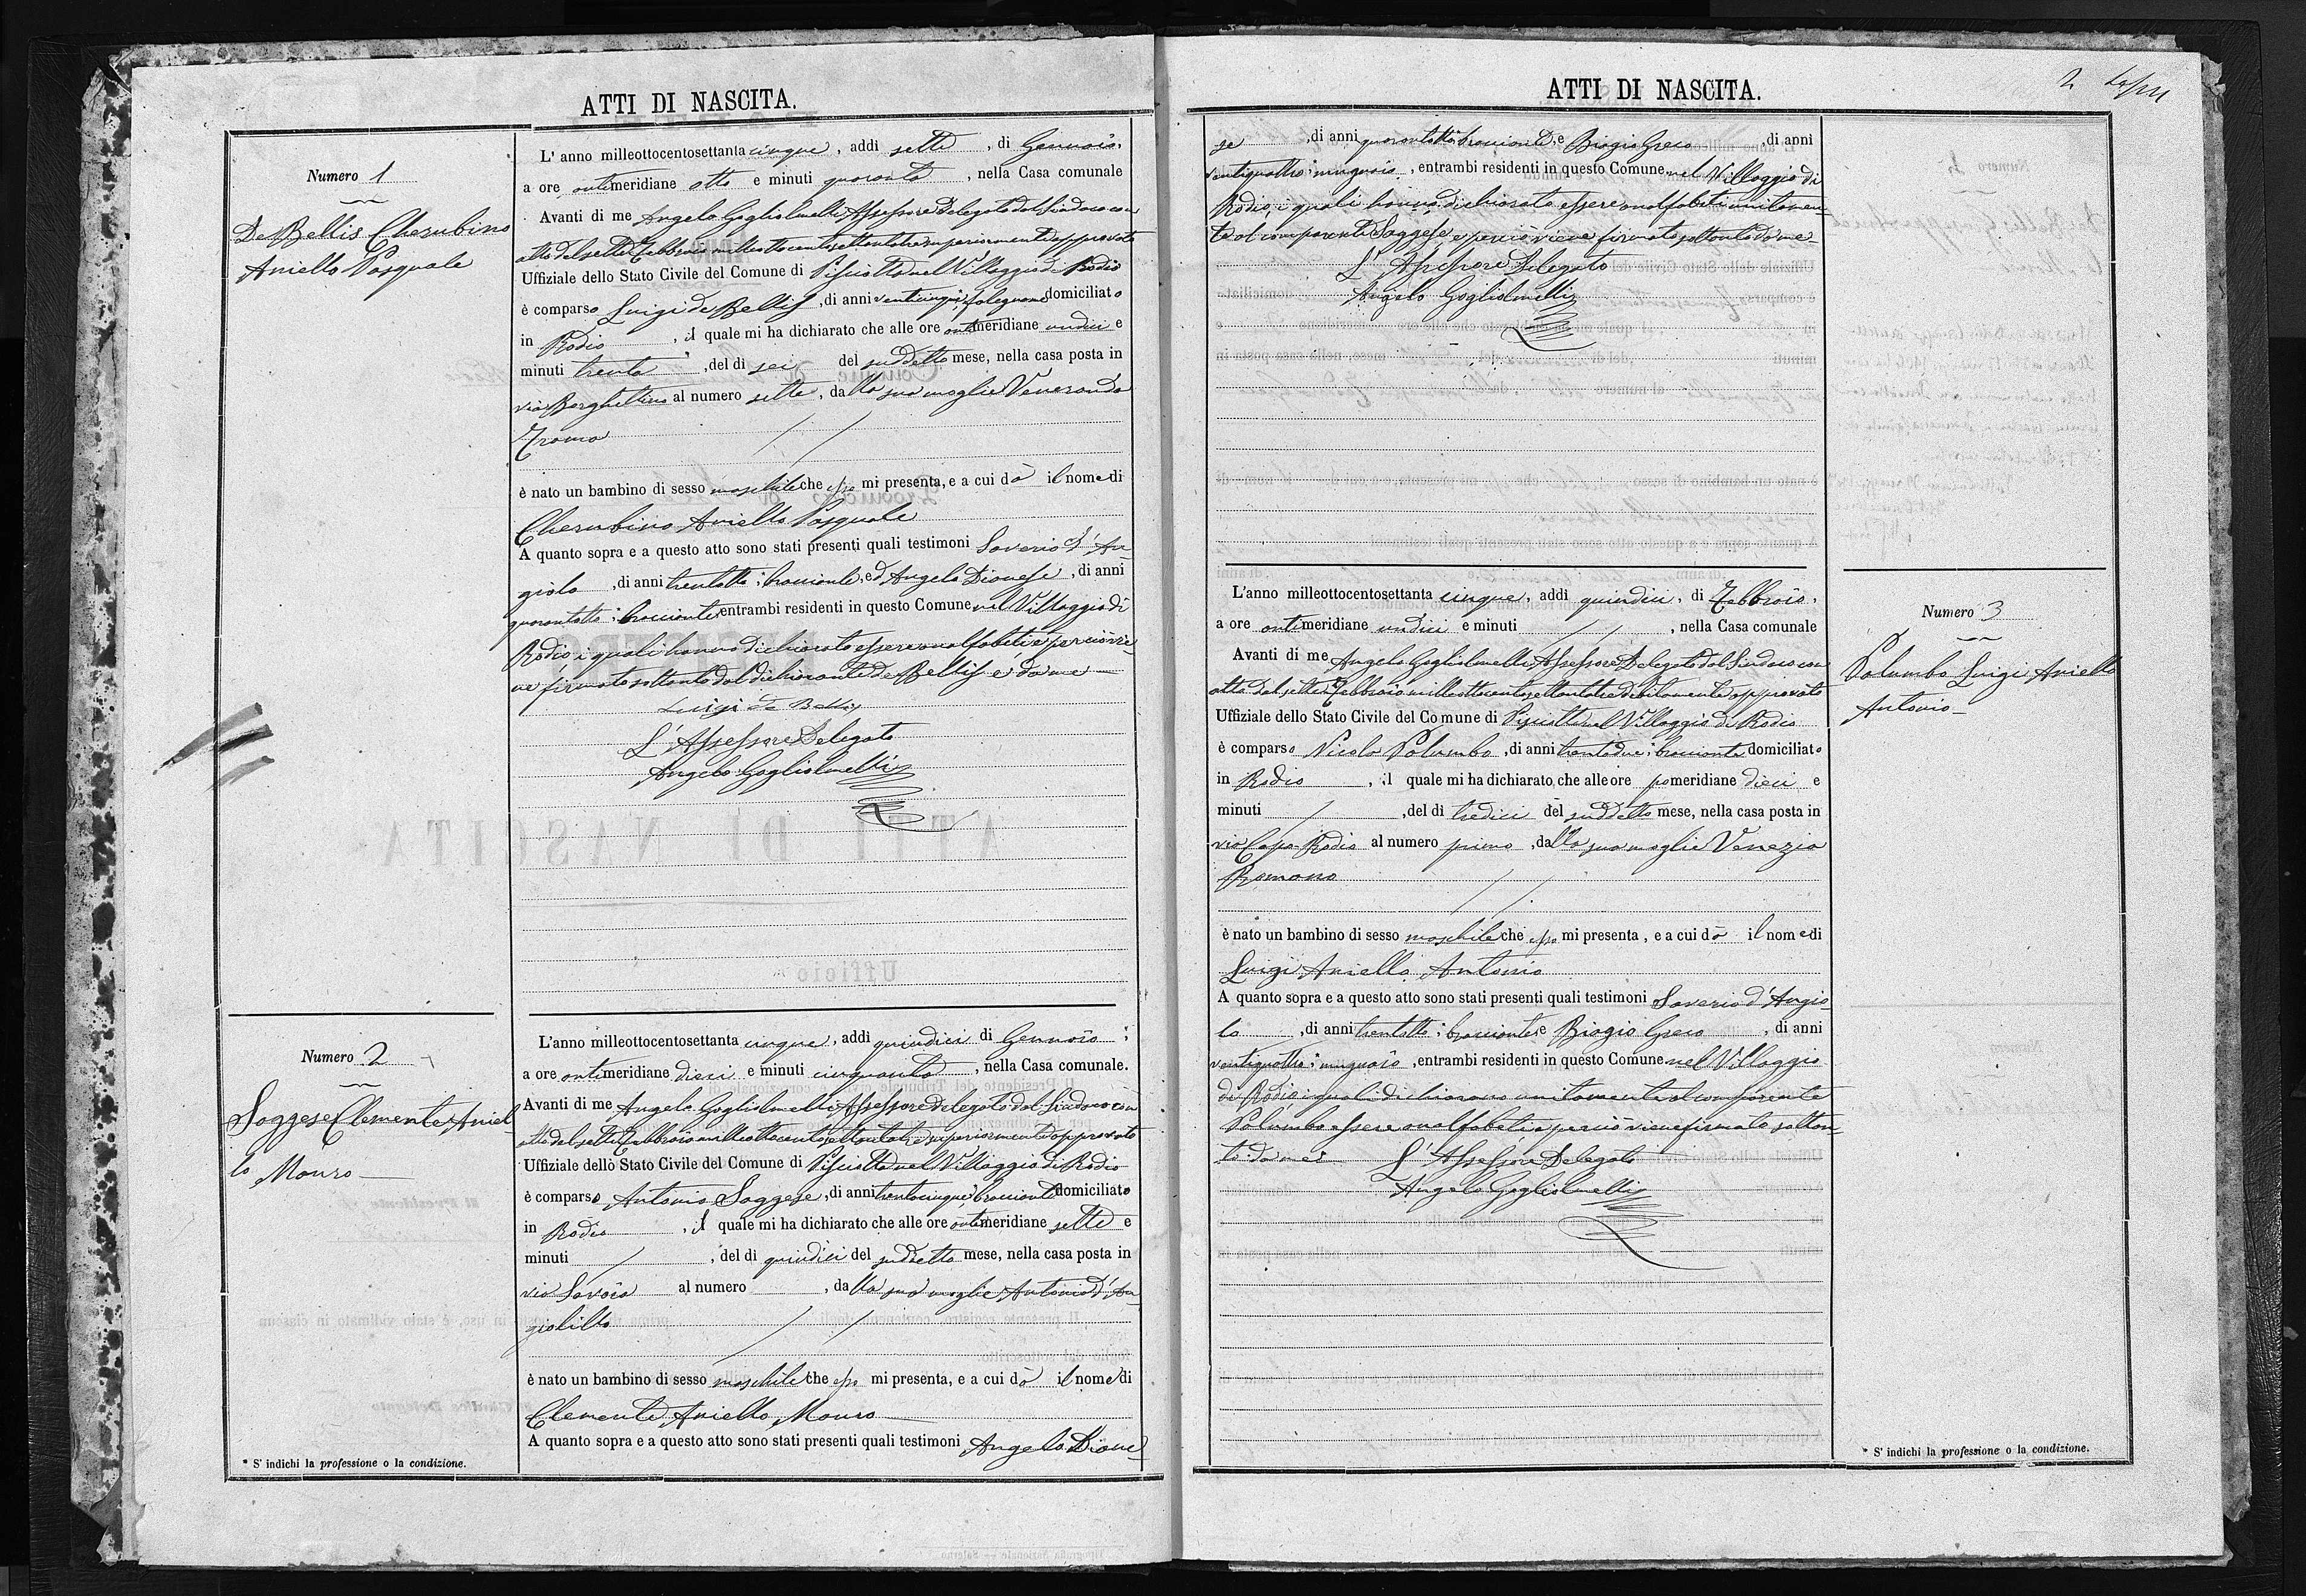 ATTI DI NASCITA.
Numero 1
De Bellis Cherubino
Aniello Pasquale
L' anno milleottocentosettanta cinque, addì sette, di Gennaio,
a ore antimeridiane otto e minuti quaranta, nella Casa comunale
Avanti di me Angelo Gogliolmelli Assessore Delegato dal Sindaco con
atto del sette Febbraio milleottocentosettantatre superiormente approvato
Uffiziale dello Stato Civile del Comune di Pisciotta nel Villaggio di Rodio
è comparso Luigi de Bellis, di anni venticinque, falegname domiciliato
in Rodio, il quale mi ha dichiarato che alle ore antimeridiane undici e
minuti trenta, del dì sei del suddetto mese, nella casa posta in
via Borghettino al numero sette, dalla sua moglie Veneranda
Troma
è nato un bambino di sesso maschile che esso mi presenta, e a cui dà il nome di
Cherubino Aniello Pasquale
A quanto sopra e a questo atto sono stati presenti quali testimoni Saverio d'An-
giolo, di anni trentotto; bracciante, ed Angelo Dionese, di anni
quarantotto; bracciante, entrambi residenti in questo Comune nel Villaggio di
Rodio i quali hanno dichiarato essere analfabeti e perciò vie-
ne firmato soltanto dal dichiarante de Bellis e da me
Luigi de Bellis
L'Assessore Delegato
Angelo Gogliolmelli
Numero 2
Saggese Clemente Aniel-
lo Mauro
L'anno milleottocentosettanta cinque, addì quindici di Gennaio;
a ore antimeridiane dieci e minuti cinquanta, nella Casa comunale.
Avanti di me Angelo Gogliolmelli Assessore delegato dal Sindaco con
atto del sette Febbraio milleottocentosettantatre superiormente approvato
Uffiziale dello Stato Civile del Comune di Pisciotta nel Villaggio di Rodio
è comparso Antonio Saggese, di anni trentacinque, bracciante domiciliato
in Rodio, il quale mi ha dichiarato che alle ore antimeridiane sette e
minuti /, del dì quindici del suddetto mese, nella casa posta in
via Savoia al numero , dalla sua moglie Antonia d'An-
giolillo
è nato un bambino di sesso maschile che esso mi presenta, e a cui dà il nome di
Clemente Aniello Mauro
A quanto sopra e a questo atto sono stati presenti quali testimoni Angelo Dione-
* S' indichi la professione o la condizione.
ATTI DI NASCITA.
2
se, di anni quarantotto bracciante, e Biagio Greco, di anni
ventiquattro; mugnaio, entrambi residenti in questo Comune nel Villaggio di
Rodio, i quali hanno dichiarato essere analfabeti unitamen-
te al comparente Saggese, e perciò viene firmato soltanto da me
L'Assessore Delegato
Angelo Gogliolmelli
Numero 3
Palumbo Luigi Aniello
Antonio
L'anno milleottocentosettanta cinque, addì quindici, di Febbraio,
a ore antimeridiane undici e minuti //, nella Casa comunale
Avanti di me Angelo Gogliolmelli Assessore Delegato dal Sindaco con
atto del sette Febbraio milleottocentosettantatre debitamente approvato
Uffiziale dello Stato Civile del Comune di Pisciotta nel Villaggio di Rodio
è comparso Nicola Palumbo, di anni trentadue; bracciante domiciliato
in Rodio, il quale mi ha dichiarato, che alle ore pomeridiane dieci e
minuti /, del dì tredici del suddetto mese, nella casa posta in
via Capo Rodio al numero primo, dalla sua moglie Venezia
Romano
è nato un bambino di sesso maschile che esso mi presenta, e a cui dà il nome di
Luigi Aniello Antonio
A quanto sopra e a questo atto sono stati presenti quali testimoni Saverio d'Angio-
lo, di anni trentotto; bracciante e Biagio Greco, di anni
ventiquattro; mugnaio, entrambi residenti in questo Comune nel Villaggio
di Rodio, i quali dichiarano unitamente al comparente
Palumbo essere analfabeti e perciò viene firmato soltan-
to da me
L'Assessore Delegato
Angelo Gogliolmelli
* S' indichi la professione o la condizione.